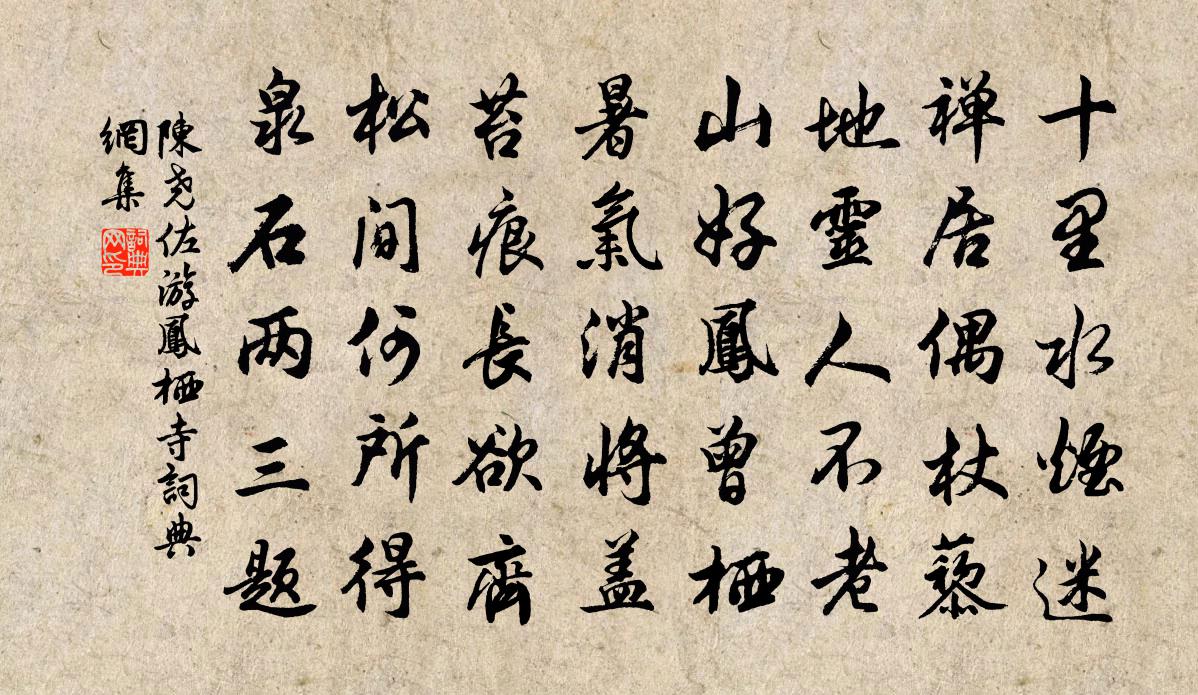 十里水煙迷
禅居偶杖藜
地靈人不老
山好鳳曾栖
暑氣消將盖
苔痕長欲齊
松間何所得
泉石两三题
陳尧佐游鳳栖寺詞典
網集
詞典
网印